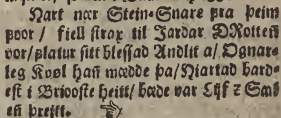 Nart nær Stein-Snare þra þeim
þoor / fiell strax til Jardar DRotten
vor/þlatur sitt blessad Andlit a/ Ognar-
leg Kvol han mædde þa/Hiartad hard-
est i Briooste heitt/ bæde var Lijf z Sæd
en þreitt.